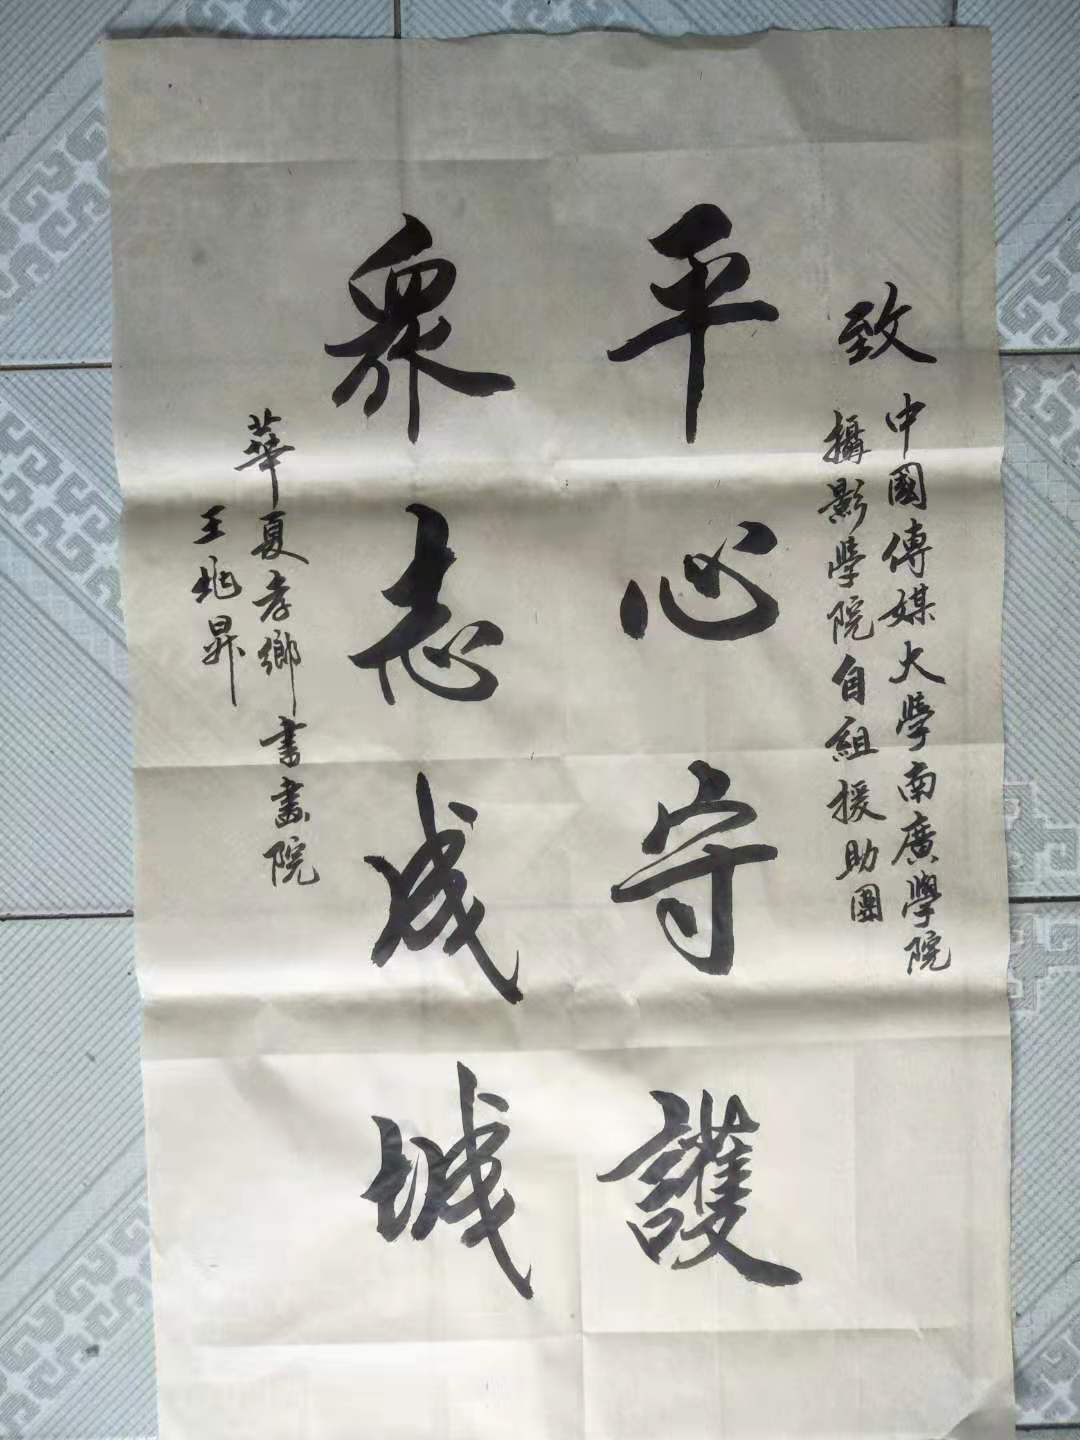 致
中國傳媒大學南廣學院
攝影學院自組援助團
平心守護
眾志成城
華夏孝鄉書畫院
王兆昇